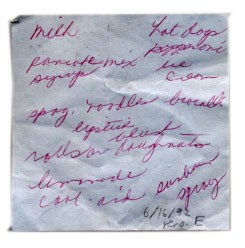 milk hot dogs
pepperoni
pancake mix ice
syrup cream
spag. noodles
lipstick blush
rolls or doughnuts
lemonade
cool-aid sunburn
spray
6/16/92